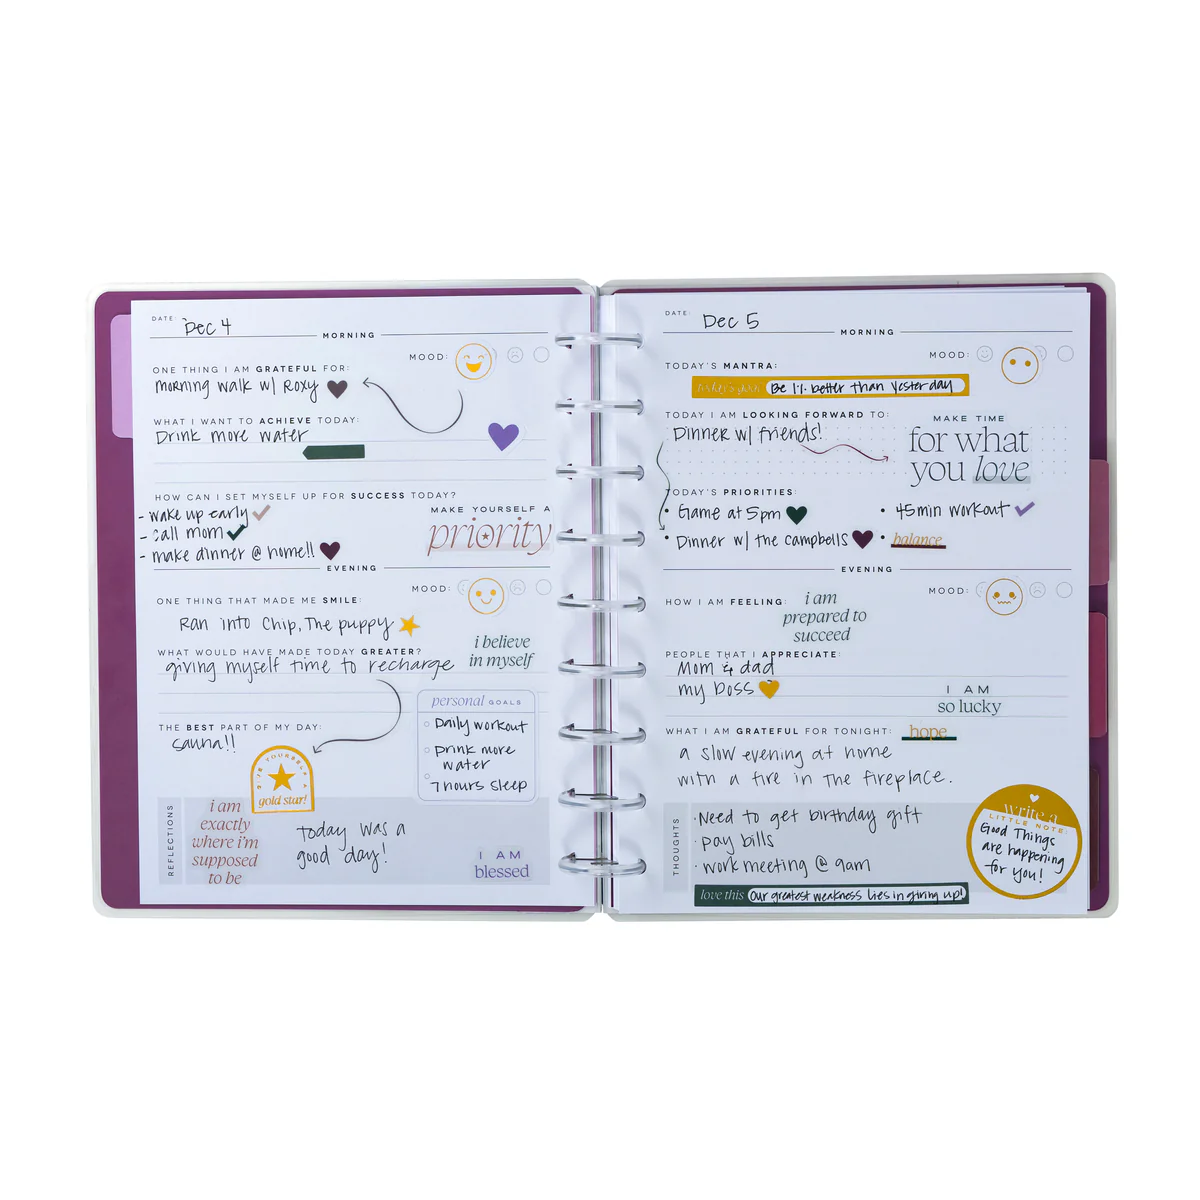 DATE: Dec 4
MORNING
MOOD:
ONE THING I AM GRATEFUL FOR:
morning walk w/ Roxy
WHAT I WANT TO ACHIEVE TODAY:
Drink more water
HOW CAN I SET MYSELF UP FOR SUCCESS TODAY?
- wake up early
- call mom
- make dinner @ home!!
MAKE YOURSELF A
priority
EVENING
MOOD:
ONE THING THAT MADE ME SMILE:
Ran into Chip, The puppy
WHAT WOULD HAVE MADE TODAY GREATER?
giving myself time to recharge
i believe
in myself
THE BEST PART OF MY DAY:
sauna!!
personal GOALS
Daily workout
Drink more
water
7 hours sleep
GIVE YOURSELF A
gold star!
REFLECTIONS
i am
exactly
where i'm
supposed
to be
Today was a
good day!
I AM
blessed
DATE: Dec 5
MORNING
MOOD:
TODAY'S MANTRA:
today's goal Be 1% better than yesterday
TODAY I AM LOOKING FORWARD TO:
Dinner w/ friends!
MAKE TIME
for what
you love
TODAY'S PRIORITIES:
• Game at 5pm
• 45min workout
• Dinner w/ the campbells
• balance
EVENING
MOOD:
HOW I AM FEELING:
i am
prepared to
succeed
PEOPLE THAT I APPRECIATE:
Mom & dad
my boss
I AM
so lucky
WHAT I AM GRATEFUL FOR TONIGHT:
hope
a slow evening at home
with a fire in the fireplace.
THOUGHTS
· Need to get birthday gift
· pay bills
· work meeting @ 9am
love this Our greatest weakness lies in giving up!
write a
LITTLE NOTE:
Good Things
are happening
for you!